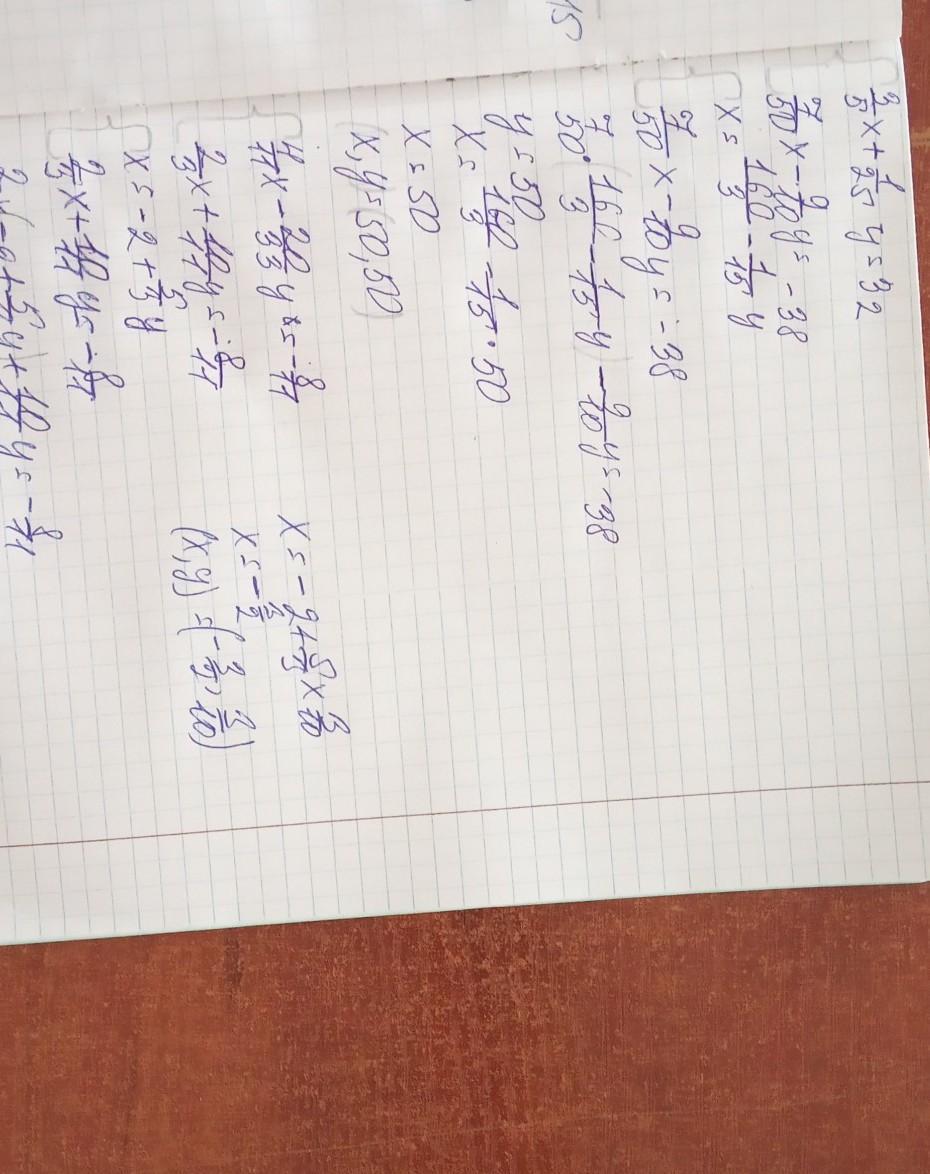 15
3/5 x + 1/25 y = 32
7/50 x - 9/10 y = -38
x = 160/3 - 1/15 y
7/50 x - 9/10 y = -38
7/50 · (160/3 - 1/15 y) - 9/10 y = -38
y = 50
x = 160/3 - 1/15 · 50
x = 50
(x, y) = (50, 50)
4/11 x - 20/33 y = -8/11
2/5 x + 10/11 y = -8/11
x = -2 + 5/3 y
2/5 x + 10/11 y = -8/11
x = -2 + 5/3 × 3/10
x = -3/2